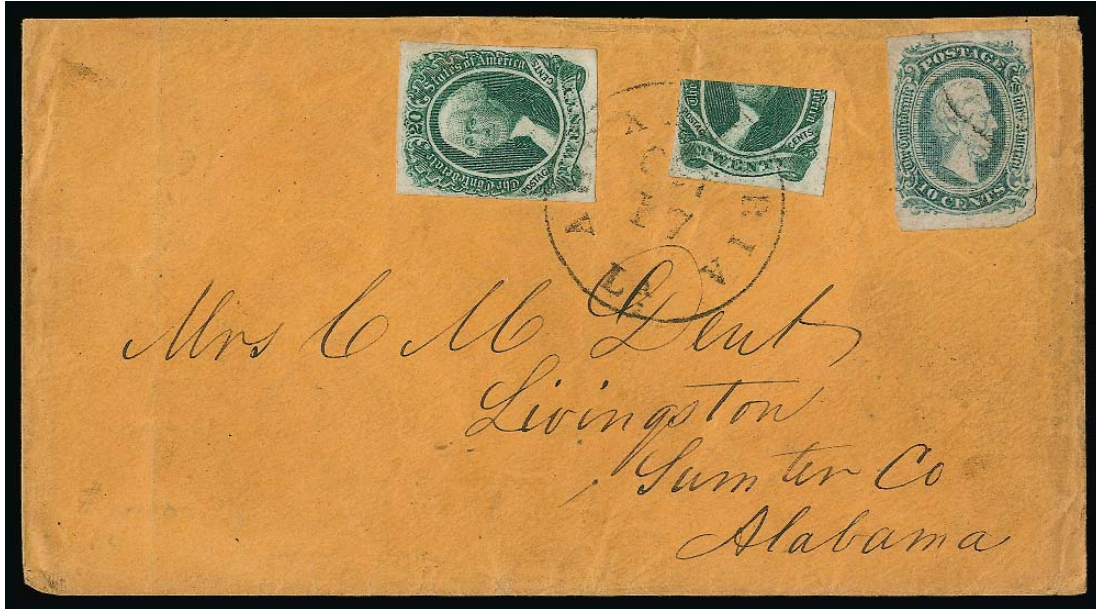 20 The Confederate States of America
POSTAGE TWENTY CENTS
The
POSTAGE TWENTY CENTS
POSTAGE
The Confederate States of America
10 CENTS
ALEXANDRIA
17
LA
Mrs C M Dent
Livingston
Sumter Co
Alabama